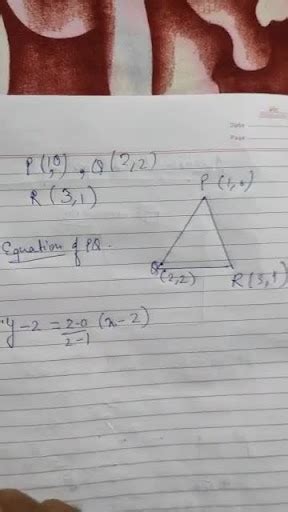 Date
Page
P(1,0), Q(2,2)
R(3,1)
P(1,0)
Equation of PQ.
Q
(2,2)
R(3,1)
y-2 = 2-0/2-1 (x-2)